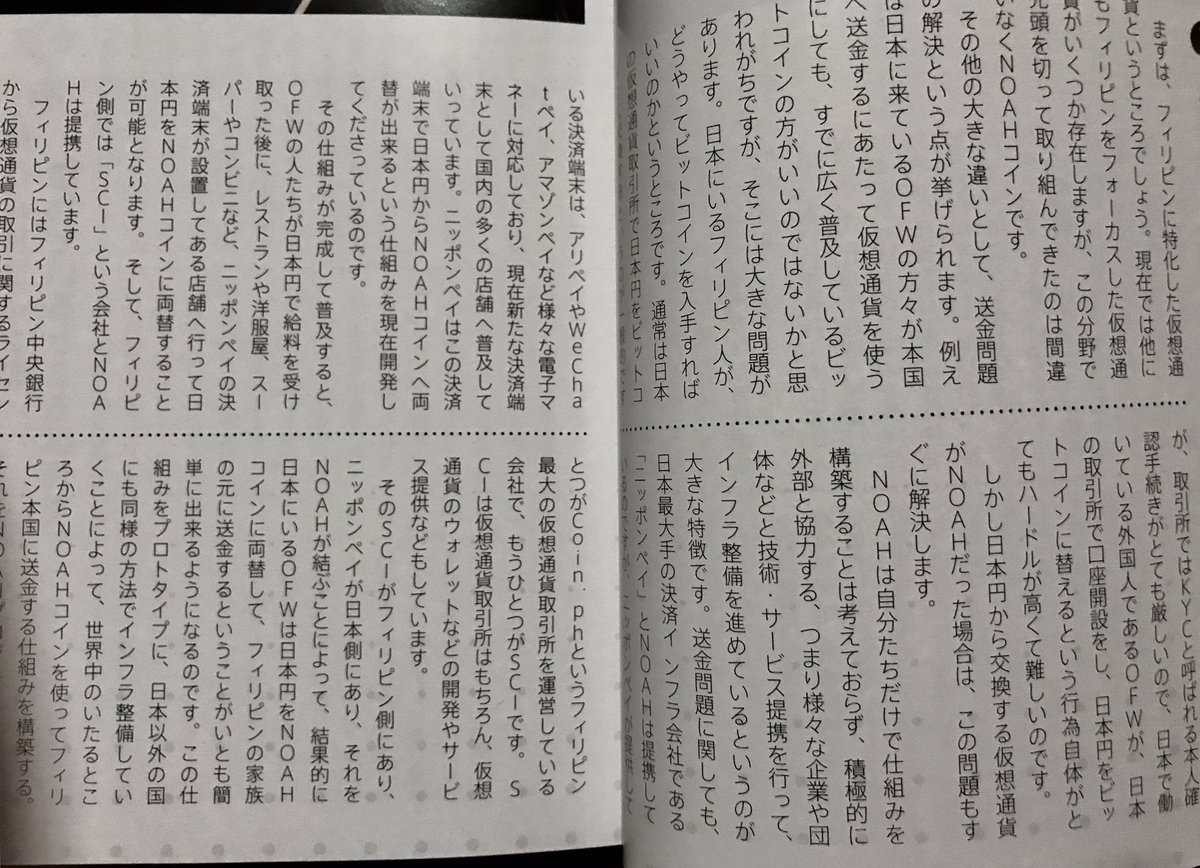 まずは、フィリピンに特化した仮想通
貨というところでしょう。現在では他に
もフィリピンをフォーカスした仮想通
貨がいくつか存在しますが、この分野で
先頭を切って取り組んできたのは間違
いなくNOAHコインです。
その他の大きな違いとして、送金問題
の解決という点が挙げられます。例え
は日本に来ているOFWの方々が本国
へ送金するにあたって仮想通貨を使う
にしても、すでに広く普及しているビッ
トコインの方がいいのではないかと思
われがちですが、そこには大きな問題が
あります。日本にいるフィリピン人が、
どうやってビットコインを入手すれば
いいのかというところです。通常は日本
の仮想通貨取引所で日本円をビットコ
が、取引所ではKYCと呼ばれる本人確
認手続きがとても厳しいので、日本で働
いている外国人であるOFWが、日本
の取引所で口座開設をし、日本円をビッ
トコインに替えるという行為自体がと
てもハードルが高くて難しいのです。
しかし日本円から交換する仮想通貨
がNOAHだった場合は、この問題もす
ぐに解決します。
NOAHは自分たちだけで仕組みを
構築することは考えておらず、積極的に
外部と協力する、つまり様々な企業や団
体などと技術・サービス提携を行って、
インフラ整備を進めているというのが
大きな特徴です。送金問題に関しても、
日本最大手の決済インフラ会社である
「ニッポンペイ」とNOAHは提携して
いる決済端末は、アリペイやWeCha
tペイ、アマゾンペイなど様々な電子マ
ネーに対応しており、現在新たな決済端
末として国内の多くの店舗へ普及して
いっています。ニッポンペイはこの決済
端末で日本円からNOAHコインへ両
替が出来るという仕組みを現在開発し
てくださっているのです。
その仕組みが完成して普及すると、
OFWの人たちが日本円で給料を受け
取った後に、レストランや洋服屋、スー
パーやコンビニなど、ニッポンペイの決
済端末が設置してある店舗へ行って日
本円をNOAHコインに両替すること
が可能となります。そして、フィリピ
ン側では「SCI」という会社とNOA
Hは提携しています。
フィリピンにはフィリピン中央銀行
から仮想通貨の取引に関するライセン
とつがCoin.phというフィリピン
最大の仮想通貨取引所を運営している
会社で、もうひとつがSCIです。S
CIは仮想通貨取引所はもちろん、仮想
通貨のウォレットなどの開発やサービ
ス提供などもしています。
そのSCIがフィリピン側にあり、
ニッポンペイが日本側にあり、それを
NOAHが結ぶことによって、結果的に
日本にいるOFWは日本円をNOAH
コインに両替して、フィリピンの家族
の元に送金するということがいとも簡
単に出来るようになるのです。この仕
組みをプロトタイプに、日本以外の国
にも同様の方法でインフラ整備してい
くことによって、世界中のいたるとこ
ろからNOAHコインを使ってフィリ
ピン本国に送金する仕組みを構築する。